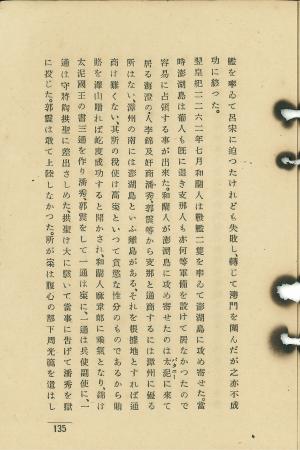 艦を率ゐて呂宋に迫つたけれども失敗し轉じて澳門を闚んだが之亦不成
功に終つた。
翌皇紀二二六二年七月和蘭人は戰艦二隻を率ゐて澎湖島に攻め寄せた。當
時澎湖島は葡人も旣に退き支那人も亦何等軍備を設けて居なかつたので
容易に占領する事が出來た。和蘭人が澎湖島に攻め寄せたのは太泥に來て
パタニー
居る海澄の人李錦及奸商潘秀、郭震等から支那と通商するには漳州に優る
所はない、漳州の南には澎湖島といふ離島がある、それを根據地とすれば通
商は難くない、其所の稅使は高寀といつて貪慾な性分のものであるから賄
賂を澤山贈れば屹度成功すると聞かされ、和蘭人麻韋郎に勇氣となり、錦は
太泥國王の書三通を作り潘秀、郭震をして一通は寀に、一通は兵使副使に、一
通は守將陶拱聖に差出さしめた。拱聖は大に駭いて當事に告げて潘秀を獄
に投じた。郭震は敢て上陸しなかつた。所が寀は腹心の部下周光蓊を遣はし
135